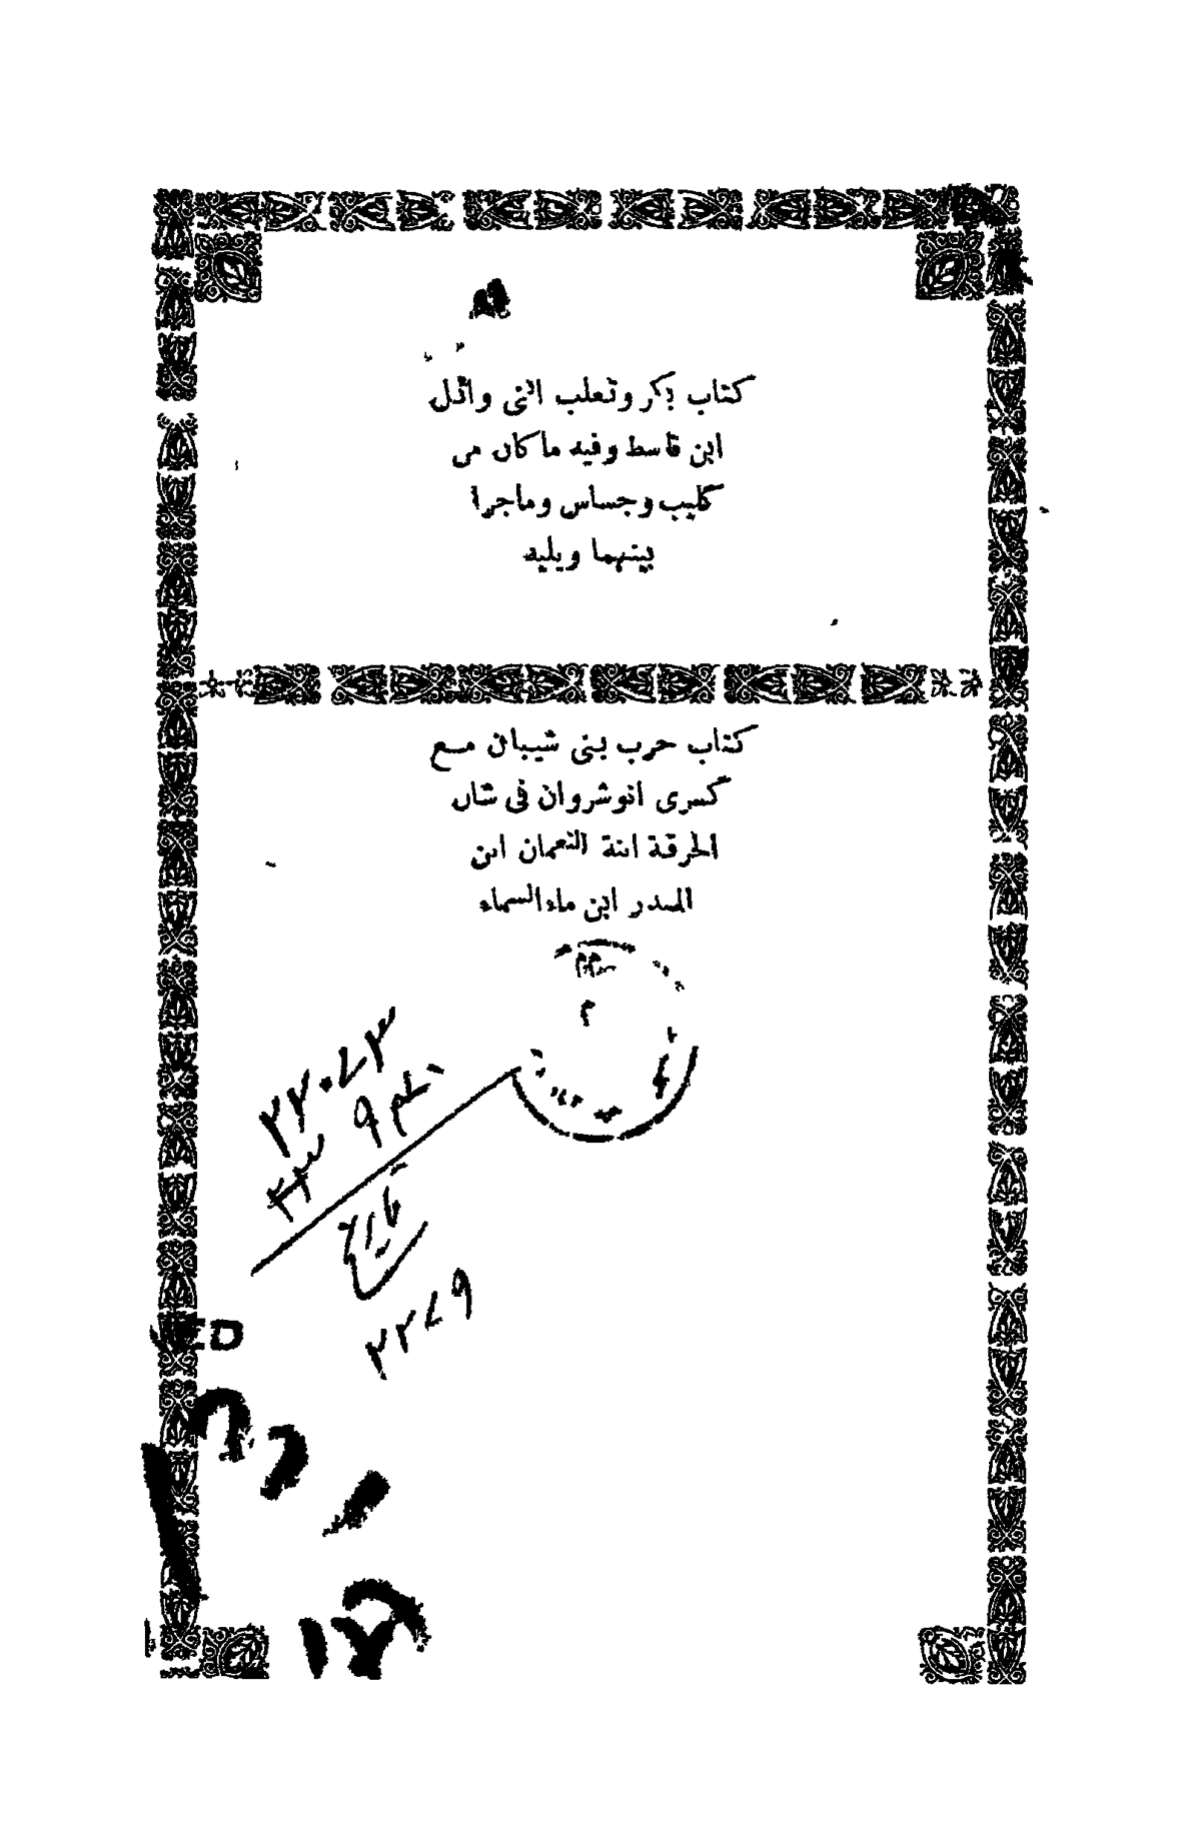 كتاب بكر وتعلب ابنى وائل
ابن قاسط وفيه ما كان من
كليب وجساس وماجرا
بينهما ويليه
كتاب حرب بنى شيبان مع
كسرى انوشروان فى شان
الحرقة ابنة النعمان ابن
المندر ابن ماء السماء
تاريخ
٢٢٧٩